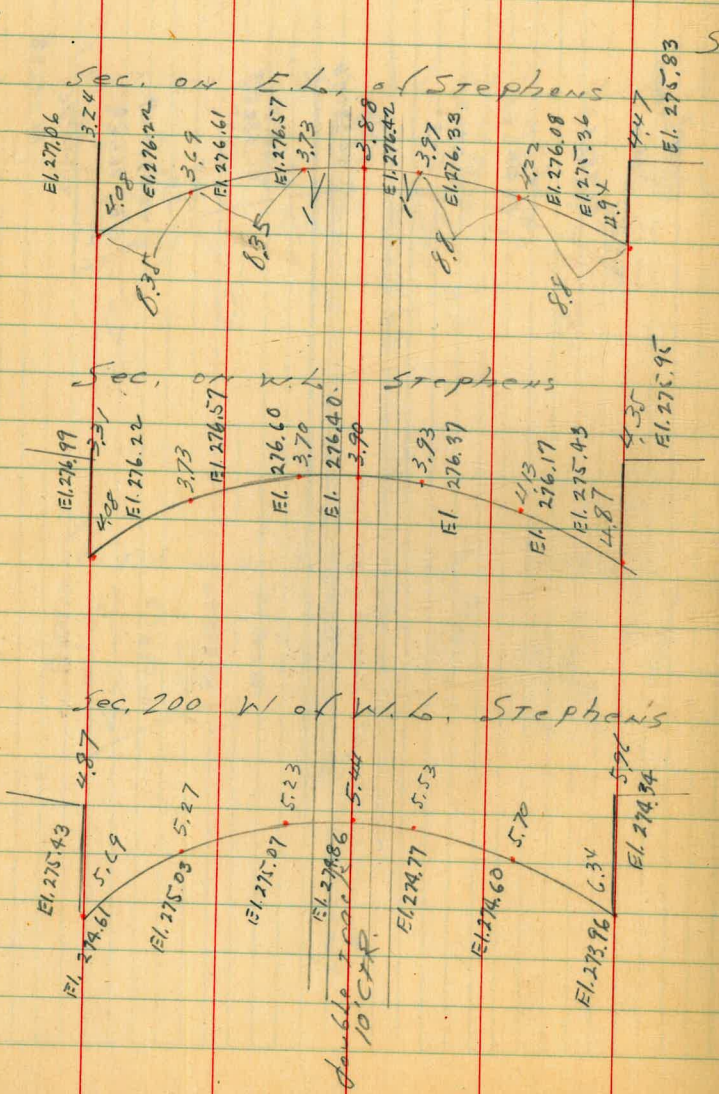 S
Sec. on E.L. of Stephens
El. 277.06
3.24
4.08
El. 276.22
3.69
El. 276.61
El. 276.57
3.73
3.88
El. 276.42
3.97
El. 276.33
4.22
El. 276.08
El. 275.36
4.94
4.47
El. 275.83
8.35
8.35
8.8
8.8
Sec. on W.L. Stephens
El. 276.99
3.31
4.08
El. 276.22
3.73
El. 276.57
El. 276.60
3.70
El. 276.40.
3.90
3.93
El. 276.37
4.13
El. 276.17
El. 275.43
4.87
4.35
El. 275.95
Sec. 200 W of W.L. Stephens
4.87
El. 275.43
5.69
El. 274.61
5.27
El. 275.03
5.23
El. 275.07
5.44
El. 274.86
5.53
El. 274.77
5.70
El. 274.60
6.34
El. 273.96
5.96
El. 274.34
double track
10' CTR.